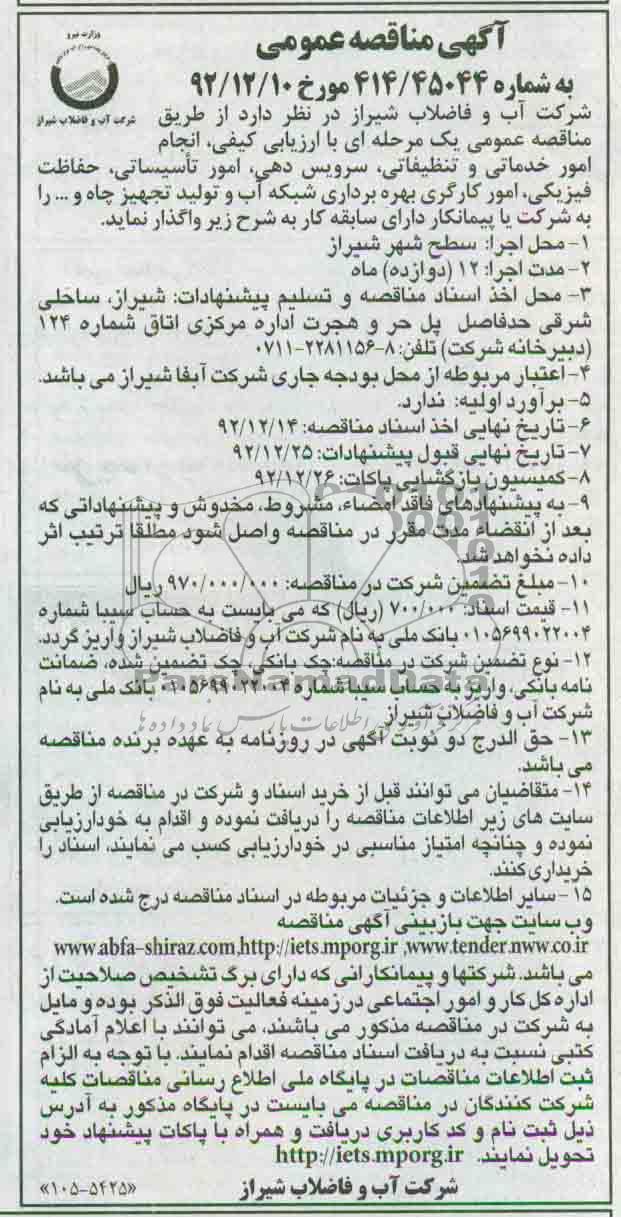 آگهی مناقصه عمومی
به شماره ۴۱۴/۴۵۰۴۴ مورخ ۹۲/۱۲/۱۰
وزارت نیرو
شرکت آب و فاضلاب شیراز
شرکت آب و فاضلاب شیراز در نظر دارد از طریق
مناقصه عمومی یک مرحله ای با ارزیابی کیفی، انجام
امور خدماتی و تنظیفاتی، سرویس دهی، امور تأسیساتی، حفاظت
فیزیکی، امور کارگری بهره برداری شبکه آب و تولید تجهیز چاه و ... را
به شرکت یا پیمانکار دارای سابقه کار به شرح زیر واگذار نماید.
۱- محل اجرا: سطح شهر شیراز
۲- مدت اجرا: ۱۲ (دوازده) ماه
۳- محل اخذ اسناد مناقصه و تسلیم پیشنهادات: شیراز، ساحلی
شرقی حدفاصل پل حر و هجرت اداره مرکزی اتاق شماره ۱۲۴
(دبیرخانه شرکت) تلفن: ۸-۲۲۸۱۱۵۶-۰۷۱۱
۴- اعتبار مربوطه از محل بودجه جاری شرکت آبفا شیراز می باشد.
۵- برآورد اولیه: ندارد.
۶- تاریخ نهایی اخذ اسناد مناقصه: ۹۲/۱۲/۱۴
۷- تاریخ نهایی قبول پیشنهادات: ۹۲/۱۲/۲۵
۸- کمیسیون بازگشایی پاکات: ۹۲/۱۲/۲۶
۹- به پیشنهادهای فاقد امضاء، مشروط، مخدوش و پیشنهاداتی که
بعد از انقضاء مدت مقرر در مناقصه واصل شود مطلقا ترتیب اثر
داده نخواهد شد.
۱۰- مبلغ تضمین شرکت در مناقصه: ۹۷۰/۰۰۰/۰۰۰ ریال
۱۱- قیمت اسناد: ۷۰۰/۰۰۰ (ریال) که می بایست به حساب سیبا شماره
۰۱۰۵۶۹۹۰۲۲۰۰۴ بانک ملی به نام شرکت آب و فاضلاب شیراز واریز گردد.
۱۲- نوع تضمین شرکت در مناقصه: چک بانکی، چک تضمین شده، ضمانت
نامه بانکی، واریز به حساب سیبا شماره ۰۱۰۵۶۹۹۰۲۲۰۰۴ بانک ملی به نام
شرکت آب و فاضلاب شیراز
ParsNamadData
مرکز فرآوری اطلاعات پارس نماد داده ها
۱۳- حق الدرج دو نوبت آگهی در روزنامه به عهده برنده مناقصه
می باشد.
۱۴- متقاضیان می توانند قبل از خرید اسناد و شرکت در مناقصه از طریق
سایت های زیر اطلاعات مناقصه را دریافت نموده و اقدام به خودارزیابی
نموده و چنانچه امتیاز مناسبی در خودارزیابی کسب می نمایند، اسناد را
خریداری کنند.
۱۵- سایر اطلاعات و جزئیات مربوطه در اسناد مناقصه درج شده است.
وب سایت جهت بازبینی آگهی مناقصه
www.abfa-shiraz.com,http://iets.mporg.ir ,www.tender.nww.co.ir
می باشد. شرکتها و پیمانکارانی که دارای برگ تشخیص صلاحیت از
اداره کل کار و امور اجتماعی در زمینه فعالیت فوق الذکر بوده و مایل
به شرکت در مناقصه مذکور می باشند، می توانند با اعلام آمادگی
کتبی نسبت به دریافت اسناد مناقصه اقدام نمایند. با توجه به الزام
ثبت اطلاعات مناقصات در پایگاه ملی اطلاع رسانی مناقصات کلیه
شرکت کنندگان در مناقصه می بایست در پایگاه مذکور به آدرس
ذیل ثبت نام و کد کاربری دریافت و همراه با پاکات پیشنهاد خود
تحویل نمایند. http://iets.mporg.ir
شرکت آب و فاضلاب شیراز
«۱۰۵-۵۴۲۵»